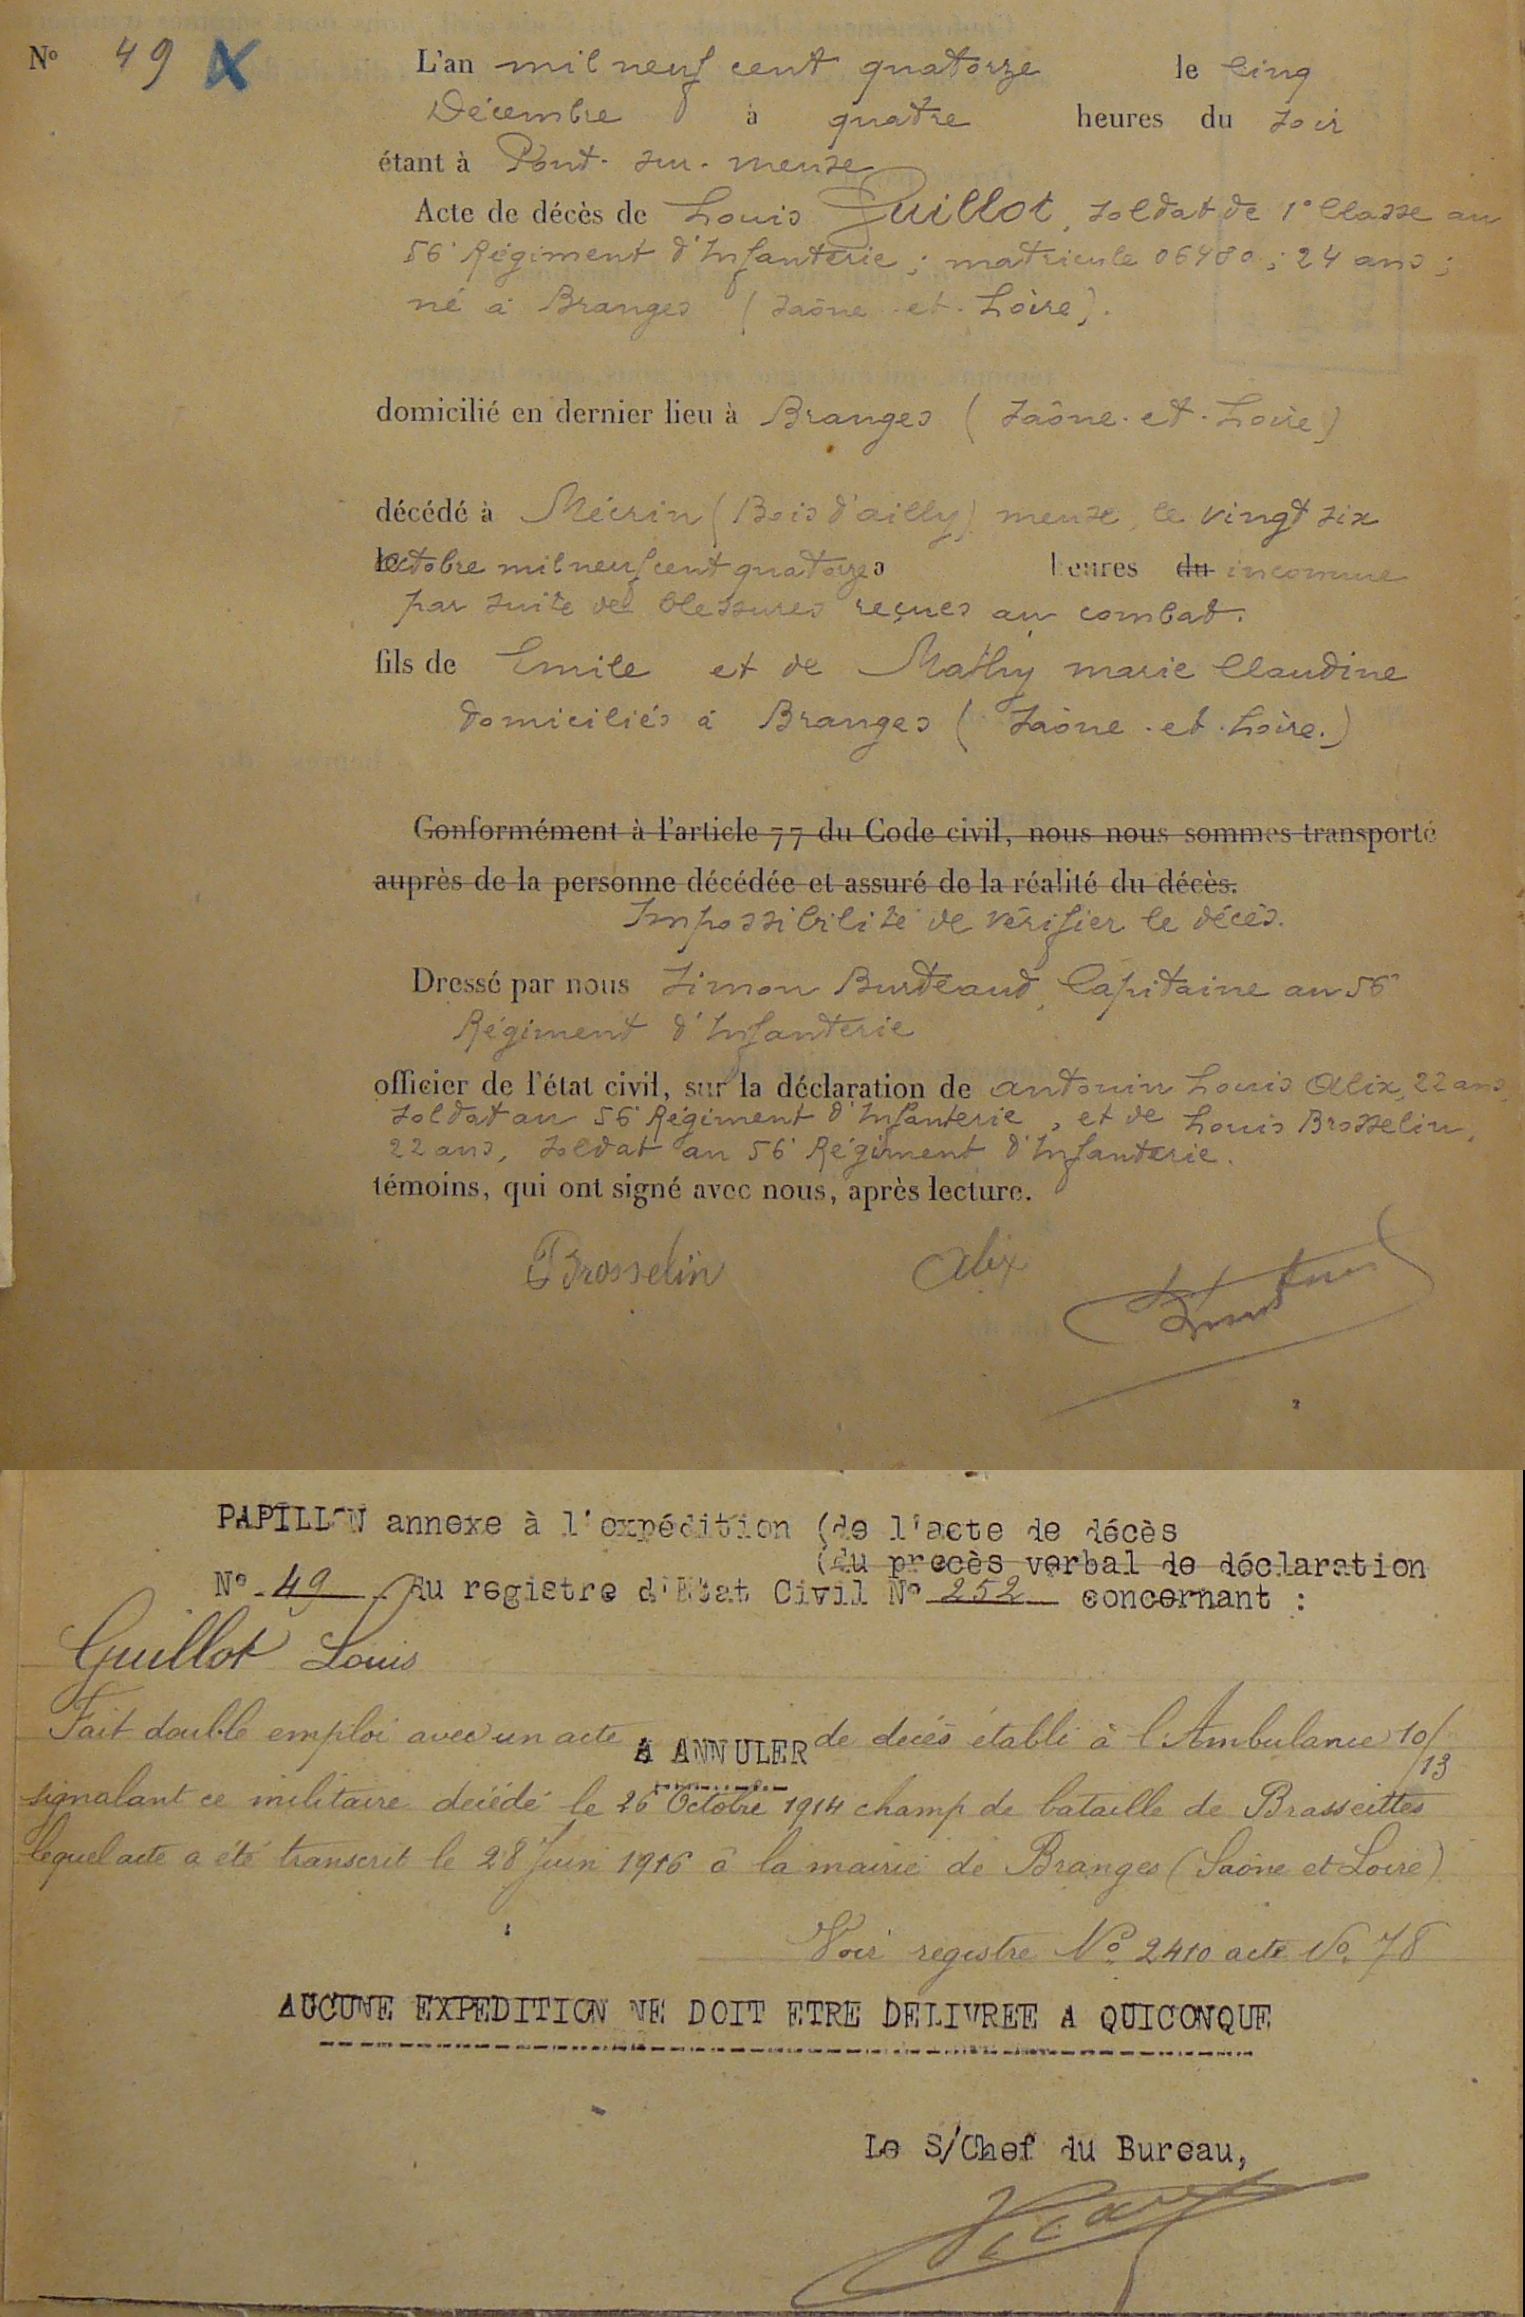 N° 49 X
L'an mil neuf cent quatorze le Cinq
Décembre à quatre heures du soir
étant à Pont-sur-meuse
Acte de décès de Louis Guillot, soldat de 1e Classe au
56e Régiment d'Infanterie ; matricule 06480 ; 24 ans ;
né à Branges (Saône-et-Loire).
domicilié en dernier lieu à Branges (Saône-et-Loire)
décédé à Mécrin (Bois d'ailly) meuse, le vingt six
octobre mil neuf cent quatorze heures du inconnue
par suite de blessures reçues au combat.
fils de Emile et de Mathy marie Claudine
domiciliés à Branges (Saône-et-Loire.)
Conformément à l'article 77 du Code civil, nous nous sommes transporté
auprès de la personne décédée et assuré de la réalité du décès.
Impossibilité de vérifier le décès.
Dressé par nous Simon Burdeaud, Capitaine au 56e
Régiment d'Infanterie
officier de l'état civil, sur la déclaration de antonin Louis Alix, 22 ans,
soldat au 56e Régiment d'Infanterie, et de Louis Brosselin,
22 ans, soldat au 56e Régiment d'Infanterie.
témoins, qui ont signé avec nous, après lecture.
Brosselin Alix
PAPILLON annexe à l'expédition (de l'acte de décès
(du procès verbal de déclaration
N° 49 du registre d'Etat Civil N° 252 concernant :
Guillot Louis
Fait double emploi avec un acte de décès établi à l'Ambulance 10/13
A ANNULER
signalant ce militaire décédé le 26 Octobre 1914 champ de bataille de Brasseittes
lequel acte a été transcrit le 28 Juin 1916 à la mairie de Branges (Saône et Loire)
Voir registre N° 2410 acte N° 78
AUCUNE EXPEDITION NE DOIT ETRE DELIVREE A QUICONQUE
Le S/Chef du Bureau,